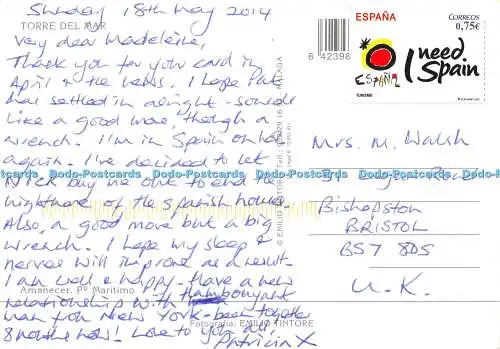 Sunday 18th May 2014
TORRE DEL MAR
Very dear Madeleine,
Thank you for your card in
April & the news. I hope Pat
has settled in alright - sounds
like a good move though a
wrench. I'm in Spain on hols
again. I've decided to let
Nick buy me out to end the
nightmare of the Spanish house.
Also, a good move but a big
wrench. I hope my sleep &
nerves will improve as a result.
I am well & happy. Have a new
relationship with flamboyant
man you New York - been together
8 months now! Love to you all,
Patricia X
Amanecer. Pº Marítimo
Fotografía: EMILIO TINTORE
© EMILIO TINTORE
MALAGA
8 42396
ESPAÑA
CORREOS
0,75€
I need
Spain
ESPAÑA
TURISMO
Mrs. M. Walsh
Road
Bishopston
BRISTOL
BS7 8DS
U.K.
Dodo-Postcards Dodo-Postcards Dodo-Postcards Dodo-Postcards Dodo-Postcards